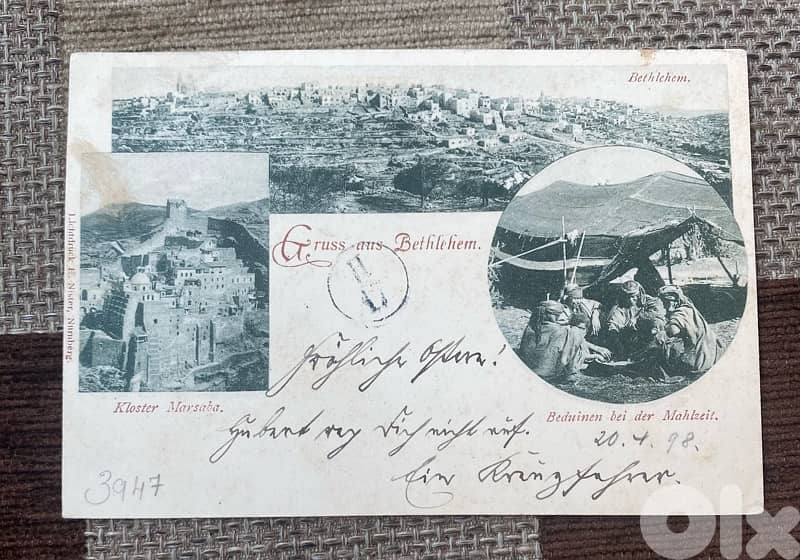 Bethlehem.
Gruss aus Bethlehem.
Lichtdruck E. Nister, Nürnberg.
Kloster Marsaba.
Beduinen bei der Mahlzeit.
Fröhliche Ostern!
Hubert reg Dich nicht auf.
20.4.98.
Ein Kreuzfahrer.
3947
OLX